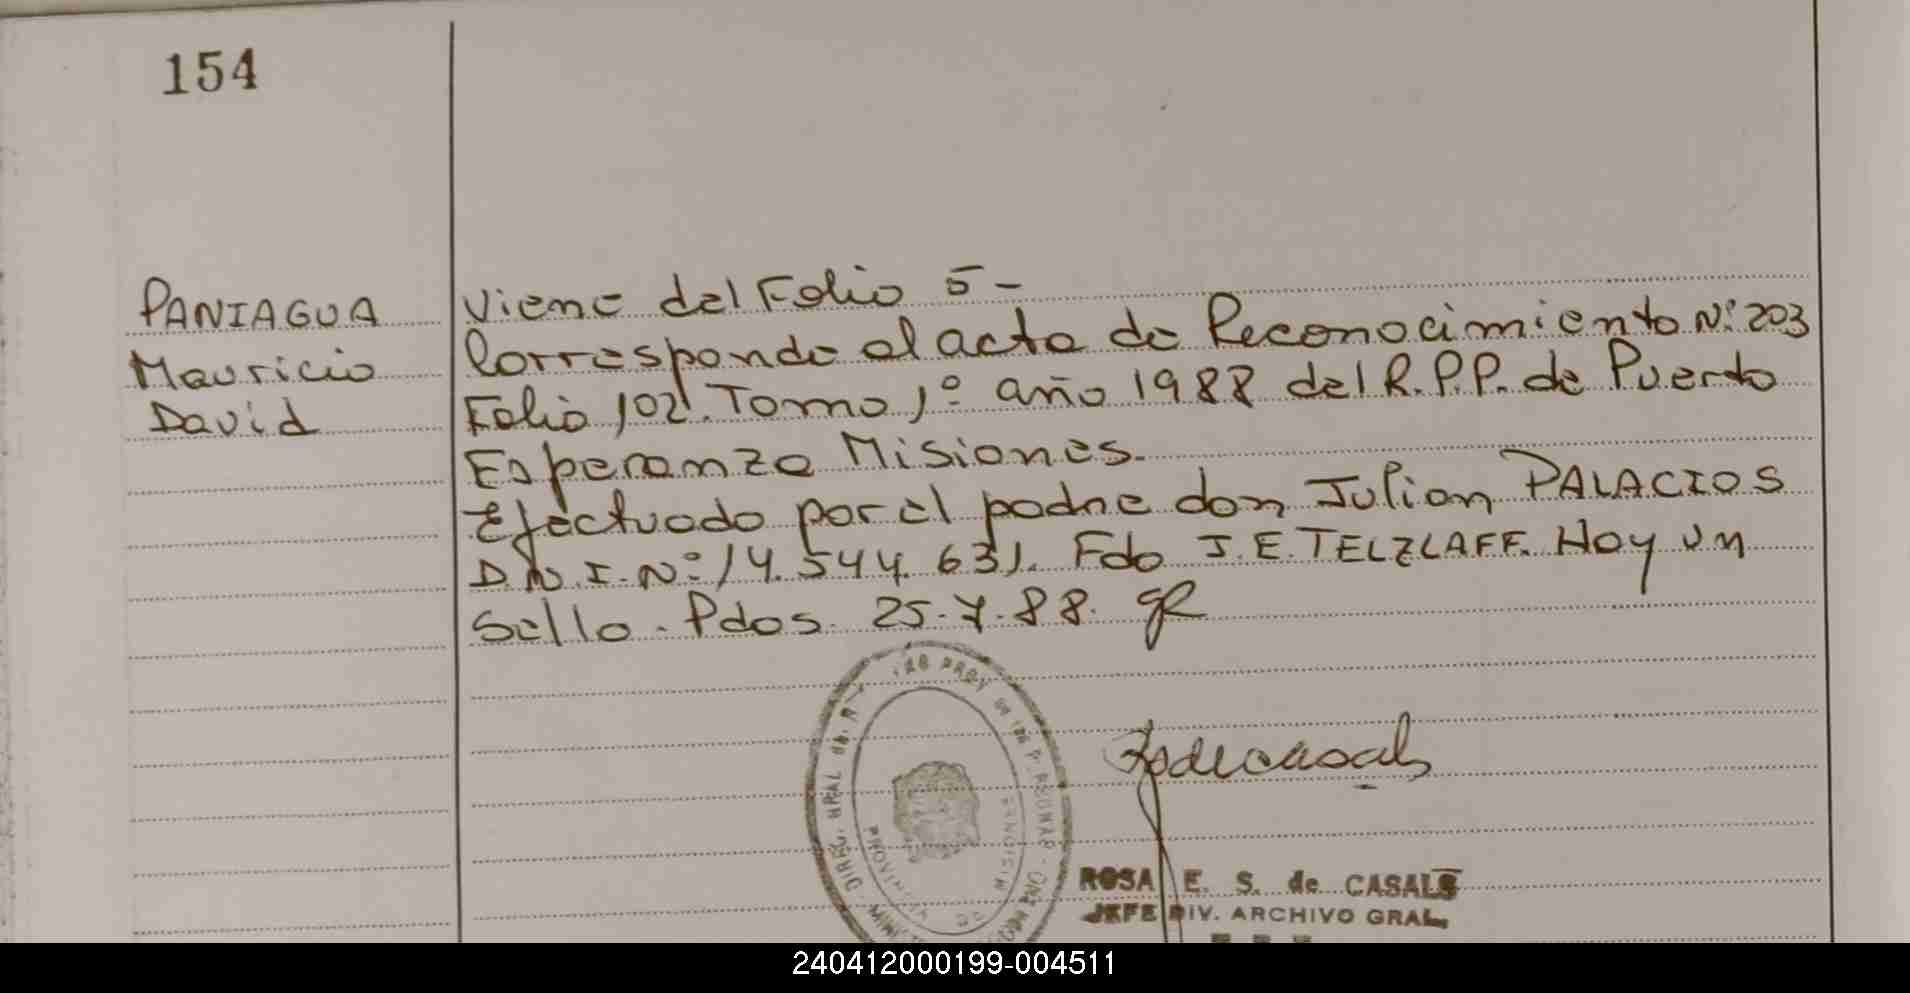 154
PANIAGUA
Mauricio
David
Viene del Folio 5-
Corresponde al acta de Reconocimiento Nº 203
Folio 102. Tomo 1º año 1988 del R.P.P. de Puerto
Esperanza Misiones.
Efectuado por el padre don Julian PALACIOS
D.N.I. Nº 14.544.631. Fdo J.E. TELZLAFF. Hay un
Sello. Pdos. 25.7.88.
ROSA E. S. de CASALS
JEFE DIV. ARCHIVO GRAL.
240412000199-004511